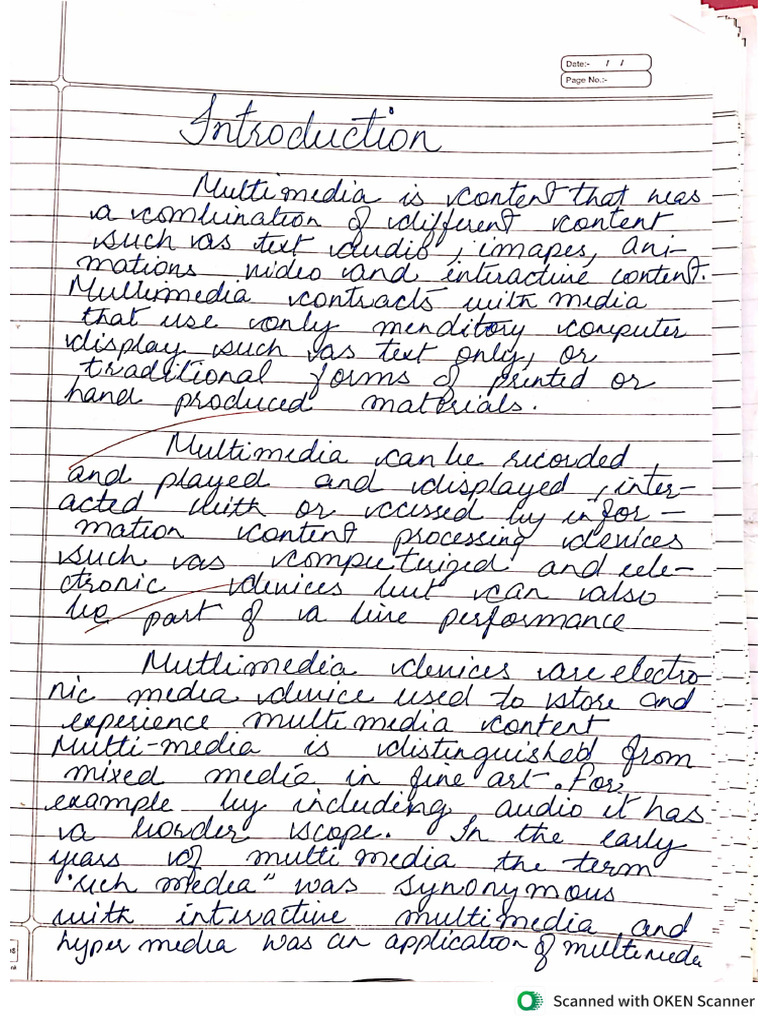 Date:- / /
Page No.:-
Introduction
Multimedia is content that was
a combination of different content
such as text audio, imapes, ani-
mations video and interactive content.
Multimedia contracts with media
that use only menditory computer
display such as text only, or
traditional forms of printed or
hand produced materials.
Multimedia can be recorded
and played and displayed, inter-
acted with or accessed by infor-
mation content processing devices
such as computerized and ele-
ctronic devices but can also
be part of a live performance
Mutlimedia devices are electro
nic media device used to store and
experience multimedia content
Multi-media is distinguished from
mixed media in fine art. For
example by including audio it has
a border scope. In the early
years of multimedia the term
"rich media" was synonymous
with interactive multimedia, and
hyper media was an application of multimedia
Scanned with OKEN Scanner